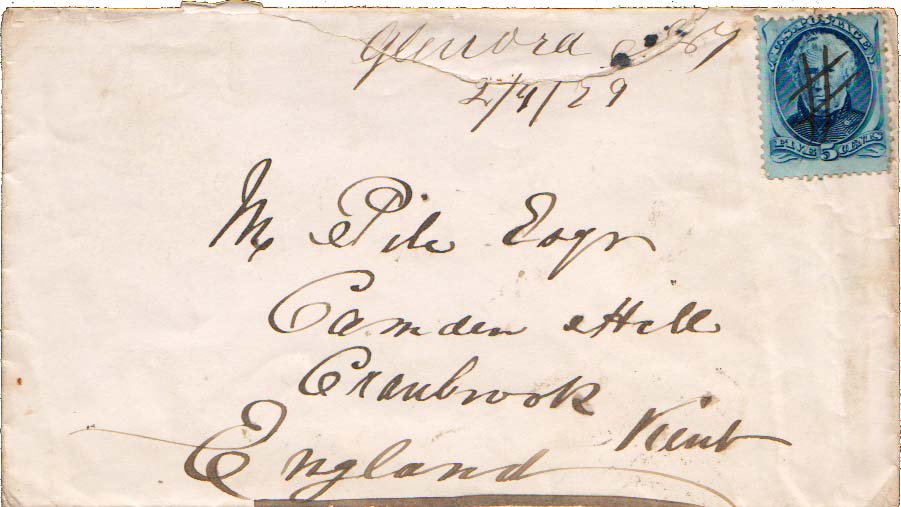 Glenora NY
2/9/79
U.S. POSTAGE
FIVE 5 CENTS
M Pile Esqr
Camden Hill
Cranbrook
Kent
England